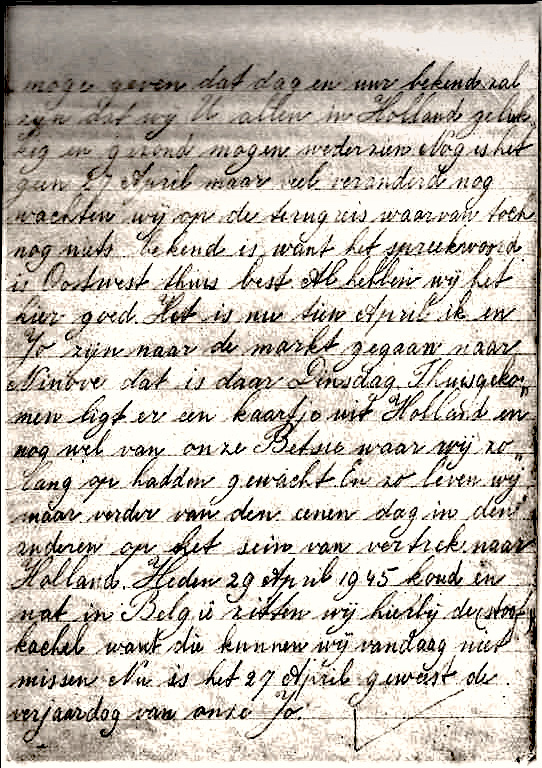 moge geven dat dag en uur bekend zal
zyn dat wy U allen in Holland geluk„
kig en gezond mogen wederzien Nog is het
geen 27 April maar veel veranderd nog
wachten wij op de terugreis waarvan toch
nog niets bekend is want het spreekwoord
is Oostwest thuis best Al hebben wij het
hier goed. Het is nu tien April ik en
Jo zijn naar de markt gegaan naar
Ninove dat is daar Dinsdag Thuisgeko„
men ligt er een kaartje uit Holland en
nog wel van onze Betsie waar wij zo
lang op hadden gewacht En zo leven wij
maar verder van den eenen dag in den
anderen op het sein van vertrek naar
Holland. Heden 29 April 1945 koud en
nat in België zitten wij hierbij de stoof
kachel want die kunnen wij vandaag niet
missen Nu is het 27 April geweest de
verjaardag van onze Jo.